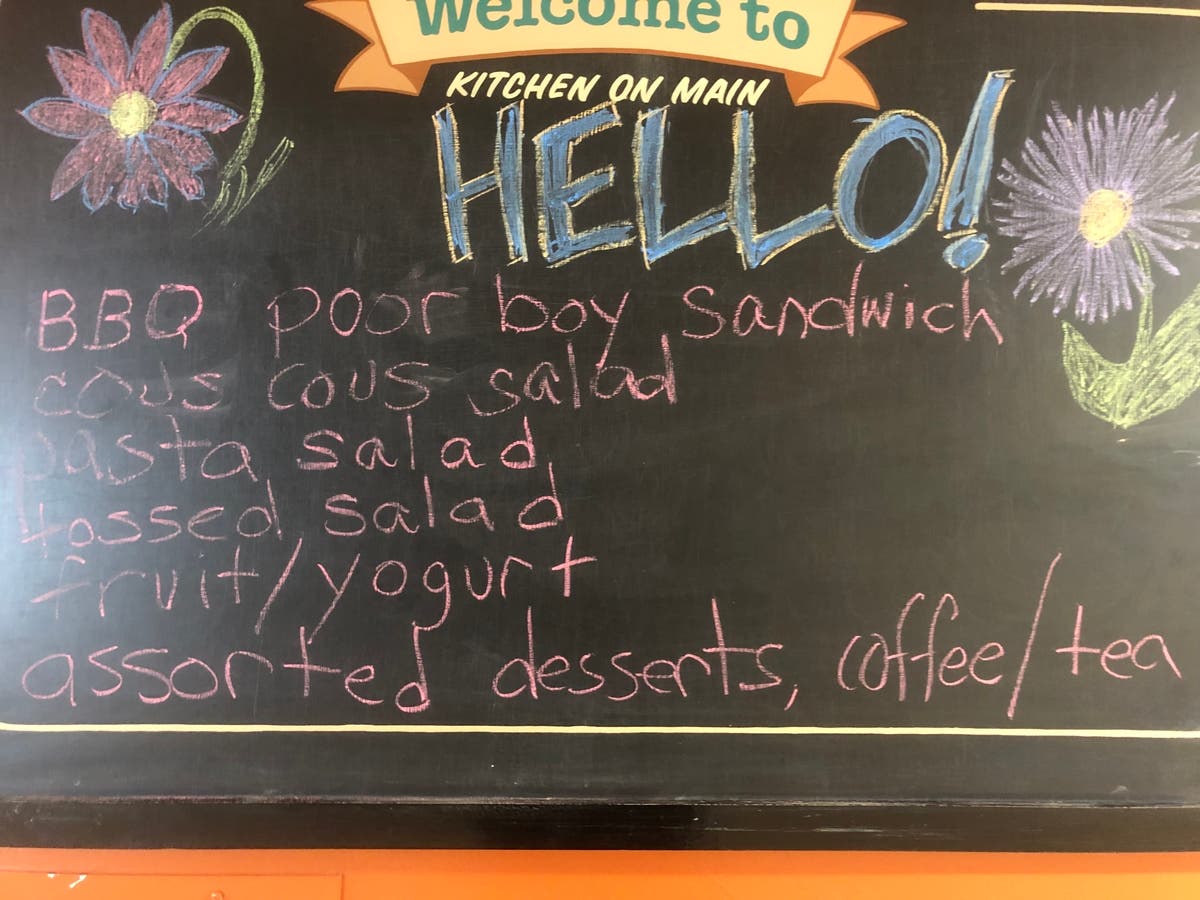 Welcome to
KITCHEN ON MAIN
HELLO!
BBQ poor boy sandwich
cous cous salad
pasta salad
tossed salad
fruit/yogurt
assorted desserts, coffee/tea